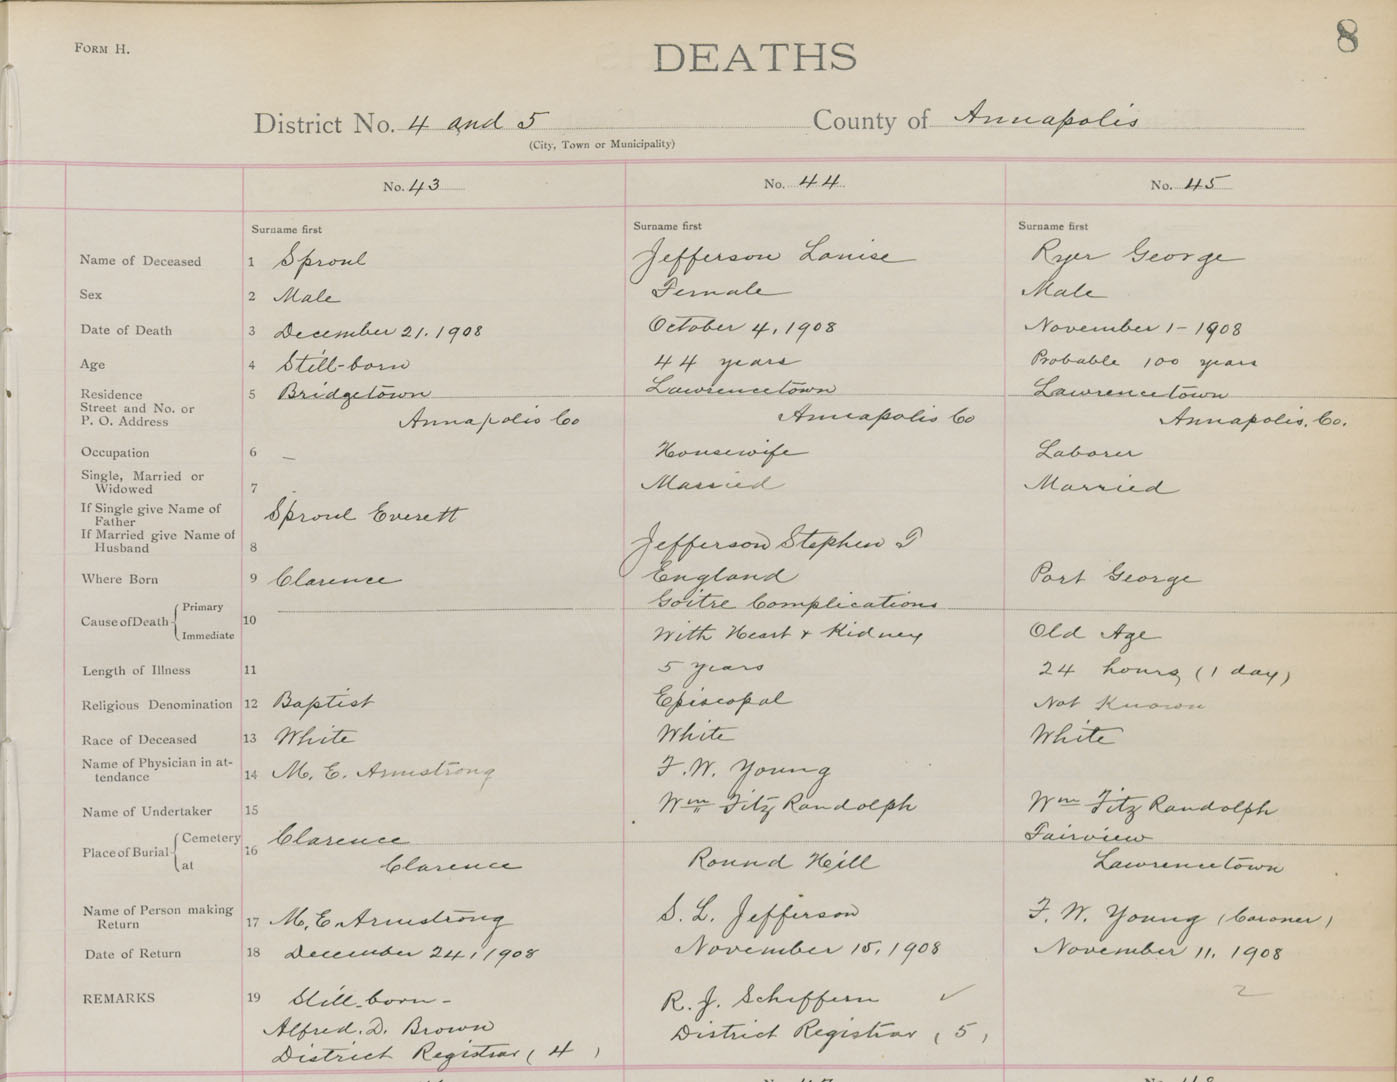 FORM H.
8
DEATHS
District No. 4 and 5 County of Annapolis
(City, Town or Municipality)
No. 43 No. 44 No. 45
Surname first Surname first Surname first
Name of Deceased 1 Sproul Jefferson Louise Ryer George
Sex 2 Male Female Male
Date of Death 3 December 21. 1908 October 4, 1908 November 1 - 1908
Age 4 Still-born 44 years Probable 100 years
Residence 5 Bridgetown Lawrencetown Lawrencetown
Street and No. or
P. O. Address Annapolis Co Annapolis Co Annapolis. Co.
Occupation 6 — Housewife Laborer
Single, Married or
Widowed 7 Married Married
If Single give Name of
Father Sproul Everett
If Married give Name of
Husband 8 Jefferson Stephen
Where Born 9 Clarence England Port George
Cause of Death Primary 10 Goitre Complications
Immediate With Heart & Kidney Old Age
Length of Illness 11 5 years 24 hours (1 day)
Religious Denomination 12 Baptist Episcopal Not Known
Race of Deceased 13 White White White
Name of Physician in at-
tendance 14 M. E. Armstrong F. W. Young
Name of Undertaker 15 Wm Fitz Randolph Wm Fitz Randolph
Place of Burial Cemetery 16 Clarence Fairview
at Clarence Round Hill Lawrencetown
Name of Person making
Return 17 M. E. Armstrong S. L. Jefferson F. W. Young (Coroner)
Date of Return 18 December 24, 1908 November 15, 1908 November 11, 1908
REMARKS 19 Still-born - R. J. Schaffern 2
Alfred. D. Brown District Registrar (5)
District Registrar (4)